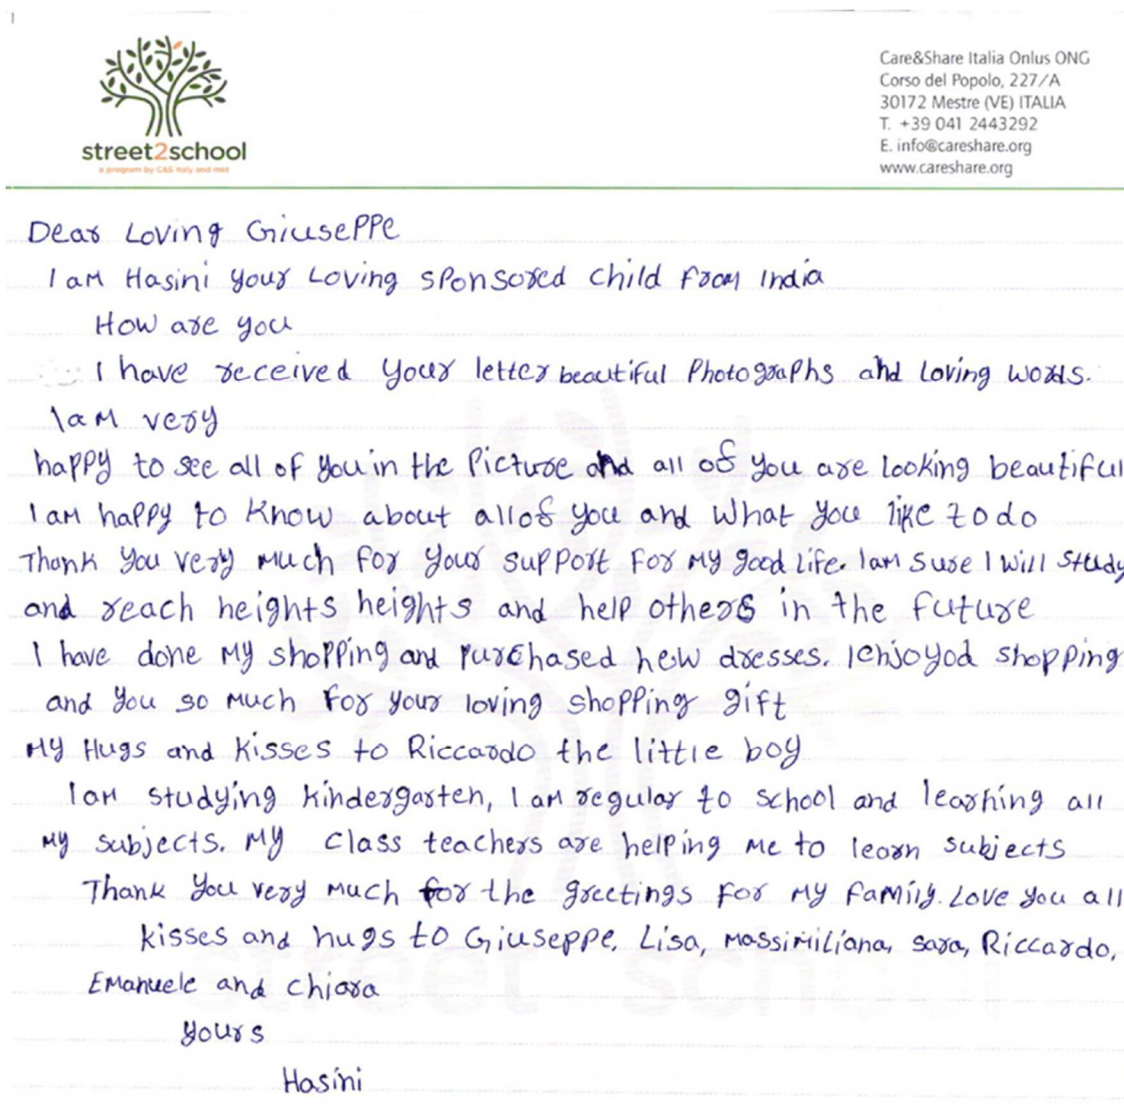 street2school
a program by C&S Italy and mkt
Care&Share Italia Onlus ONG
Corso del Popolo, 227/A
30172 Mestre (VE) ITALIA
T. +39 041 2443292
E. info@careshare.org
www.careshare.org
Dear Loving Giuseppe
I am Hasini your Loving sponsored child from India
How are you
I have received your letter beautiful Photographs and loving words.
I am very
happy to see all of you in the Picture and all of you are looking beautiful
I am happy to know about all of you and what you like to do
Thank you very much for your support for my good life. I am sure I will study
and reach heights heights and help others in the future
I have done my shopping and purchased new dresses. I enjoyod shopping
and you so much for your loving shopping gift
My Hugs and kisses to Riccardo the little boy
I am studying kindergarten, I am regular to school and learning all
my subjects. My class teachers are helping me to learn subjects
Thank you very much for the greetings for my family. Love you all
kisses and hugs to Giuseppe, Lisa, Massimiliana, Sara, Riccardo,
Emanuele and Chiara
yours
Hasini